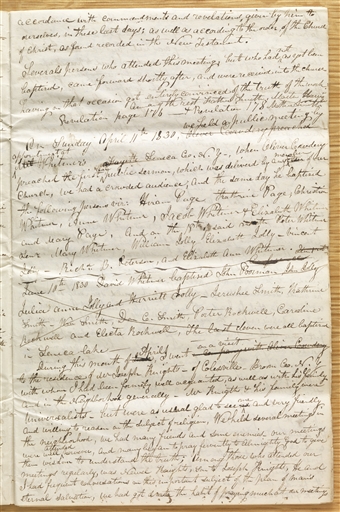 accordance with commandments and revelations given by him to
ourselves, in these last days, as well as according to the order of the Church
of Christ, as found recorded in the New Testament.
Several persons who attended this meeting, but who had not as yet been
baptized, came forward shortly after, and were received into the church
having on that occasion got entirely convinced of the truth of the work.
Revelation page 176
On Sunday April 11th 1830, Oliver Cowdery preached
Whitmers Fayette Seneca Co. N.Y. when Oliver Cowdery
preached the first public sermon, which was delivered by
Church, we had a crowded audience, and the same day he baptized
the following persons viz: Hiram Page, Katharine Page, Christian
Whitmer, Anne Whitmer, Jacob Whitmer & Elizabeth Whitmer
and Mary Page, And on the Peter Whitmer
Senr. Mary Whitmer, William Jolly Elizabeth Jolly - Vincent
Jolly - Richd B. Peterson, and Elizabeth Ann Whitmer,
June 10th 1830 David Whitmer baptized John Poorman John Jolly
Julia Anne Jolly and Harriett Jolly - Jerushee Smith, Katherine
Smith - Wm Smith, Don C. Smith, Peter Rockwell, Caroline
Rockwell and Electa Rockwell, The last eleven were all baptized
in Seneca Lake
During this month of April I went on a visit
to the residence of Mr Joseph Knight - of Colesville, Broom Co. N.Y.
with whom I had been formerly well acquainted, as well as with his family
and in the Neighborhood generally. Mr Knight & his family were
Universalists - But were as usual glad to see me and very friendly
and willing to reason on the subject of religion, We held several meetings in
the neighborhood, we had many friends and some enemies. our meetings
were well attended, and many began to pray fervently to Almighty God to give
them wisdom to understand the truth. Among those who attended our
meetings regularly, was Newel Knight, son to Joseph Knight, He and
I had frequent conversations on this important subject of the plan of man's
eternal salvation, we had got into the habit of praying much at our meetings